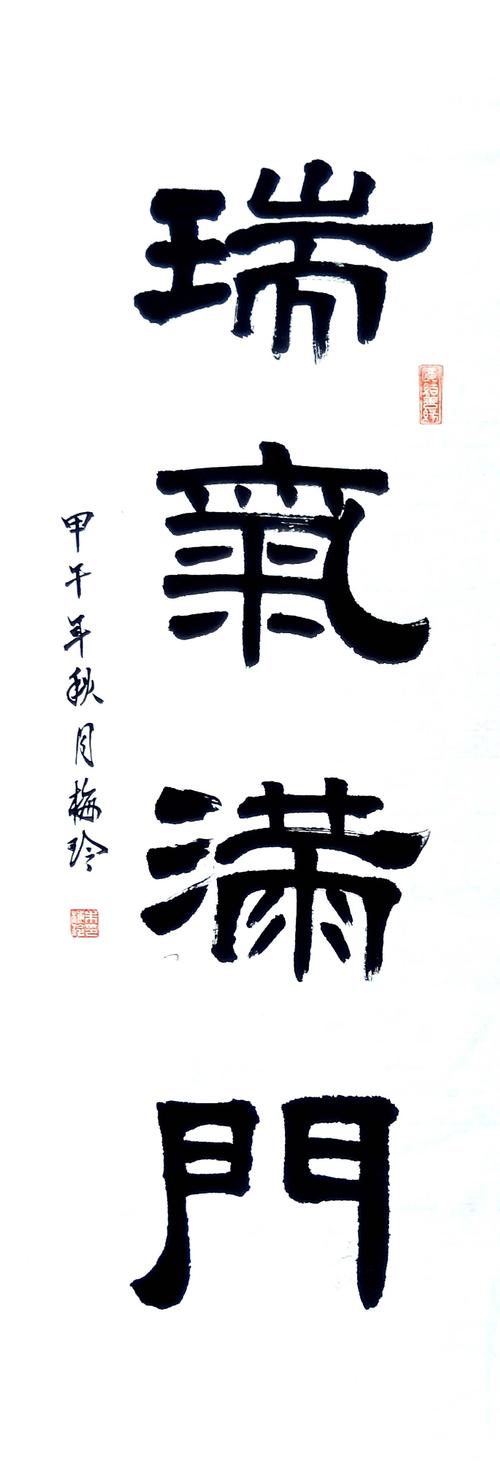 瑞氣滿門
甲午年秋月梅玲